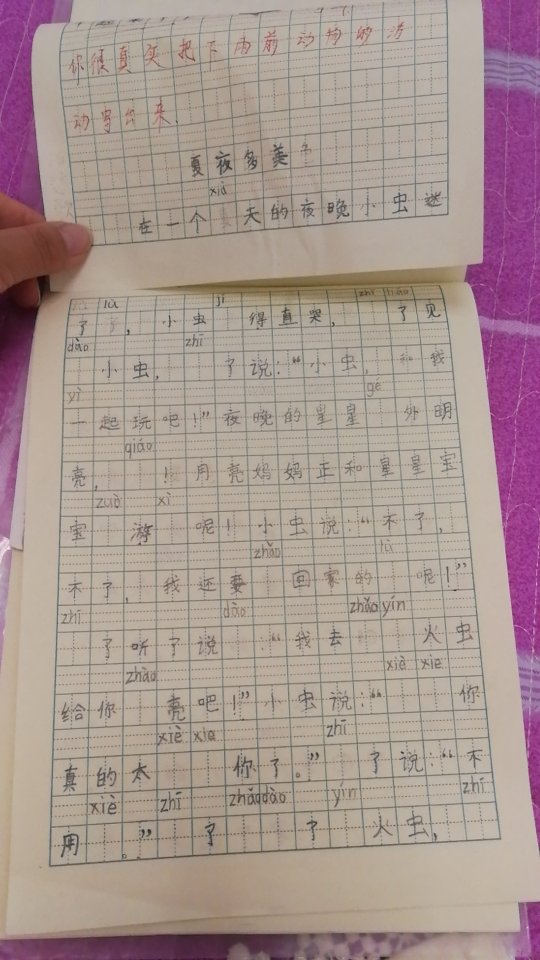 你很真实把下雨前动物的活
动写出来
夏夜多美
xià
在一个 天的夜晚小虫迷
lù jí zhī liǎo
了, 小虫 得直哭, 了见
dào zhī
小虫, 了说:“小虫, 和我
yì gé
一起玩吧!”夜晚的星星 外明
qiáo
亮, ! 月亮妈妈正和星星宝
zuò xì
宝 游 呢! 小虫说:“不了,
zhǎo lù
不了, 我还要 回家的 呢!”
zhī dào zhǎo yín
了听了说 :“我去 火虫
zhào xiè xie
给你 亮吧!”小虫说:“ 你
xiè xie zhī
真的太 你了。” 了说:“不
xiè zhī zhǎo dào yín zhī
用 。” 了 了 火虫,